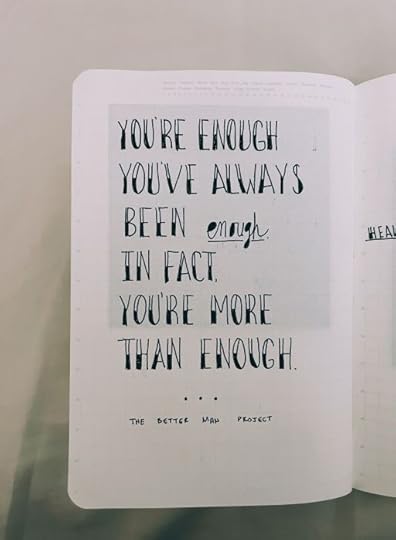 YOU'RE ENOUGH
YOU'VE ALWAYS
BEEN enough.
IN FACT,
YOU'RE MORE
THAN ENOUGH.
...
THE BETTER MAN PROJECT